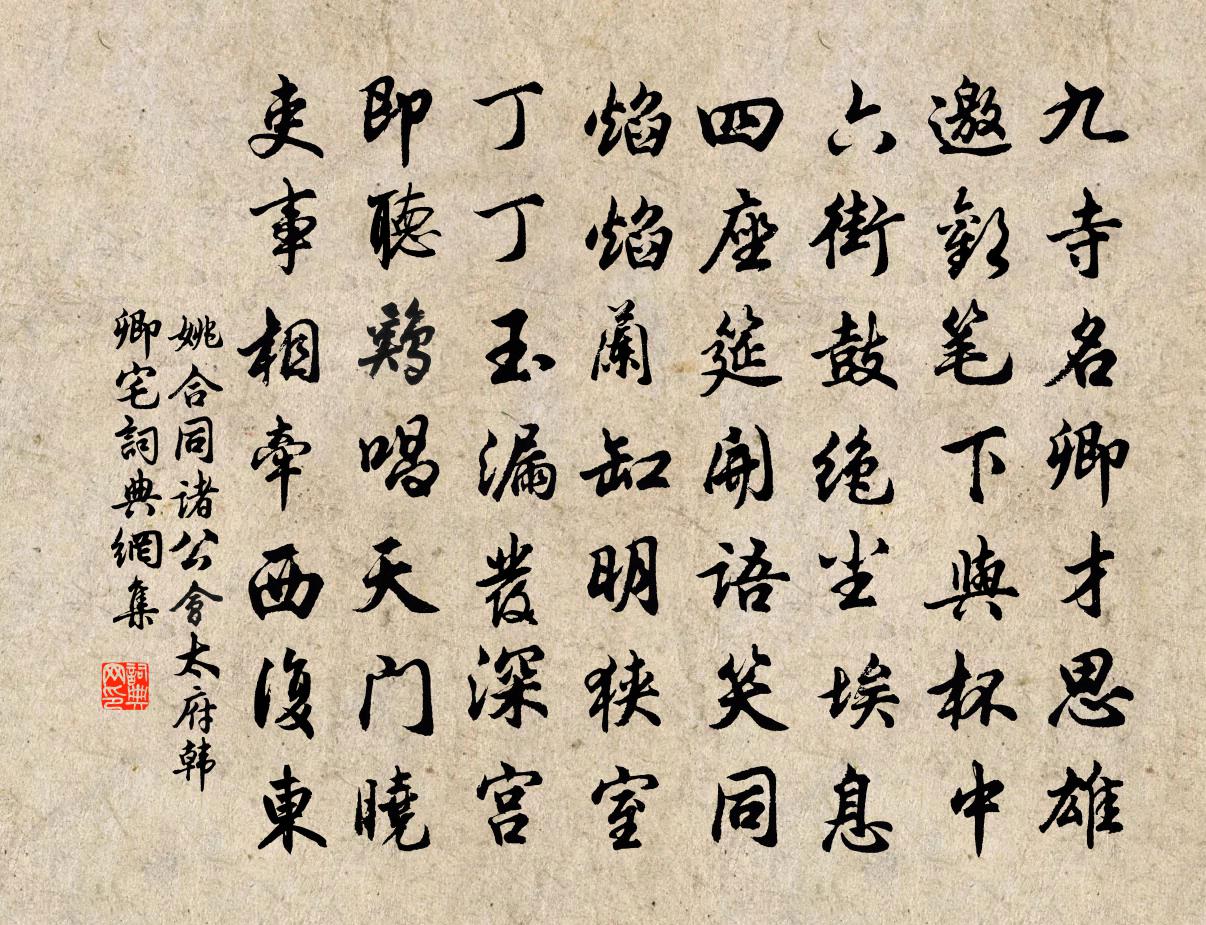 九寺名卿才思雄
邀歡笔下與杯中
六街鼓絶尘埃息
四座筵開語笑同
焰焰蘭缸明狹室
丁丁玉漏發深宫
即聽鷄唱天门曉
吏事相牽西復東
姚合同诸公會太府韩
卿宅詞典網集
詞典
网印